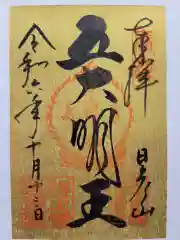 奉拝
五大明王
日之山
令和六年十月十三日